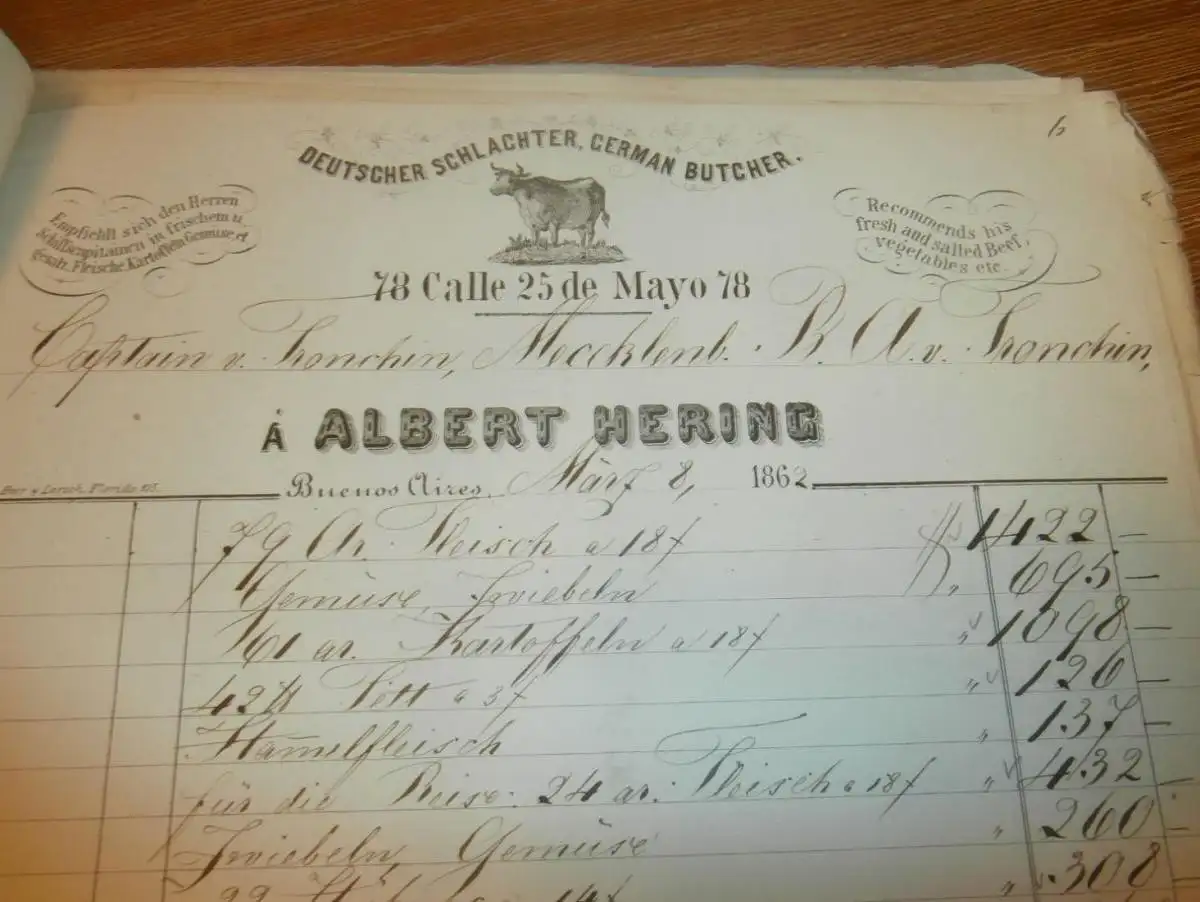 DEUTSCHER SCHLACHTER, GERMAN BUTCHER.
Empfiehlt sich den Herren
Schiffscapitainen in frischem u.
gesalz. Fleische, Kartoffeln Gemüse, et
Recommends his
fresh and salted Beef,
vegetables etc.
78 Calle 25 de Mayo 78
Captain v. Tronchin, Mecklenb. B. A. v. Tronchin,
Á ALBERT HERING
Buenos Aires, März 8, 1862.
79 Ar. Fleisch a 18f 1422.—
Gemüse, Zwiebeln „ 695 —
61 ar. Kartoffeln a 18f „ 1098 —
42 ℔ Fett a 3f „ 126 —
Hamelfleisch „ 137 —
für die Reise: 24 ar. Fleisch a 18f „ 432 —
Zwiebeln, Gemüse „ 260 —
22 a 14f „ 308 —